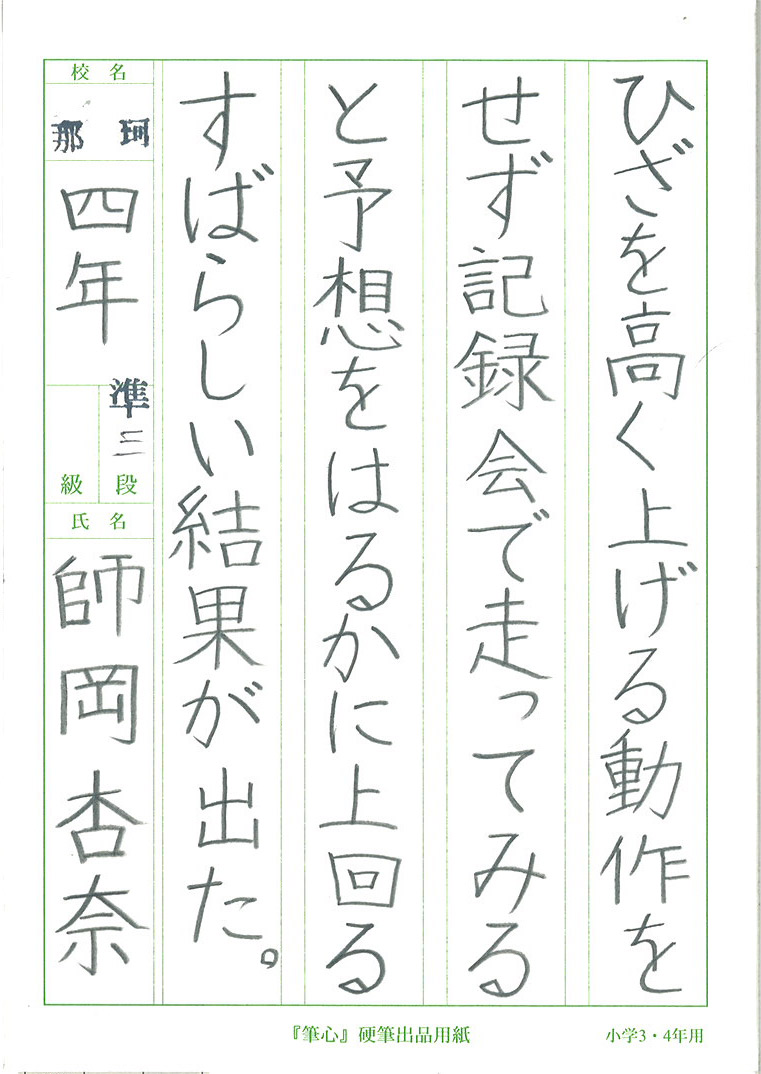 ひざを高く上げる動作を
せず記録会で走ってみる
と予想をはるかに上回る
すばらしい結果が出た。
校名
那珂
四年
準三
段
級
氏名
師岡杏奈
『筆心』硬筆出品用紙
小学3・4年用